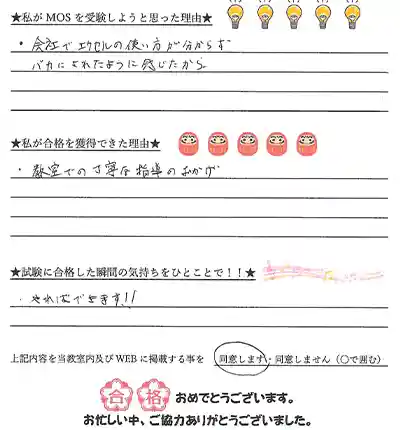 ★私が MOS を受験しようと思った理由★
・会社でエクセルの使い方が分からず
バカにされたように感じたから
★私が合格を獲得できた理由★
・教室での丁寧な指導のおかげ
★試験に合格した瞬間の気持ちをひとことで！！★
・やればできます!!
上記内容を当教室内及び WEB に掲載する事を 同意します・同意しません（〇で囲む）
合格 おめでとうございます。
お忙しい中、ご協力ありがとうございました。